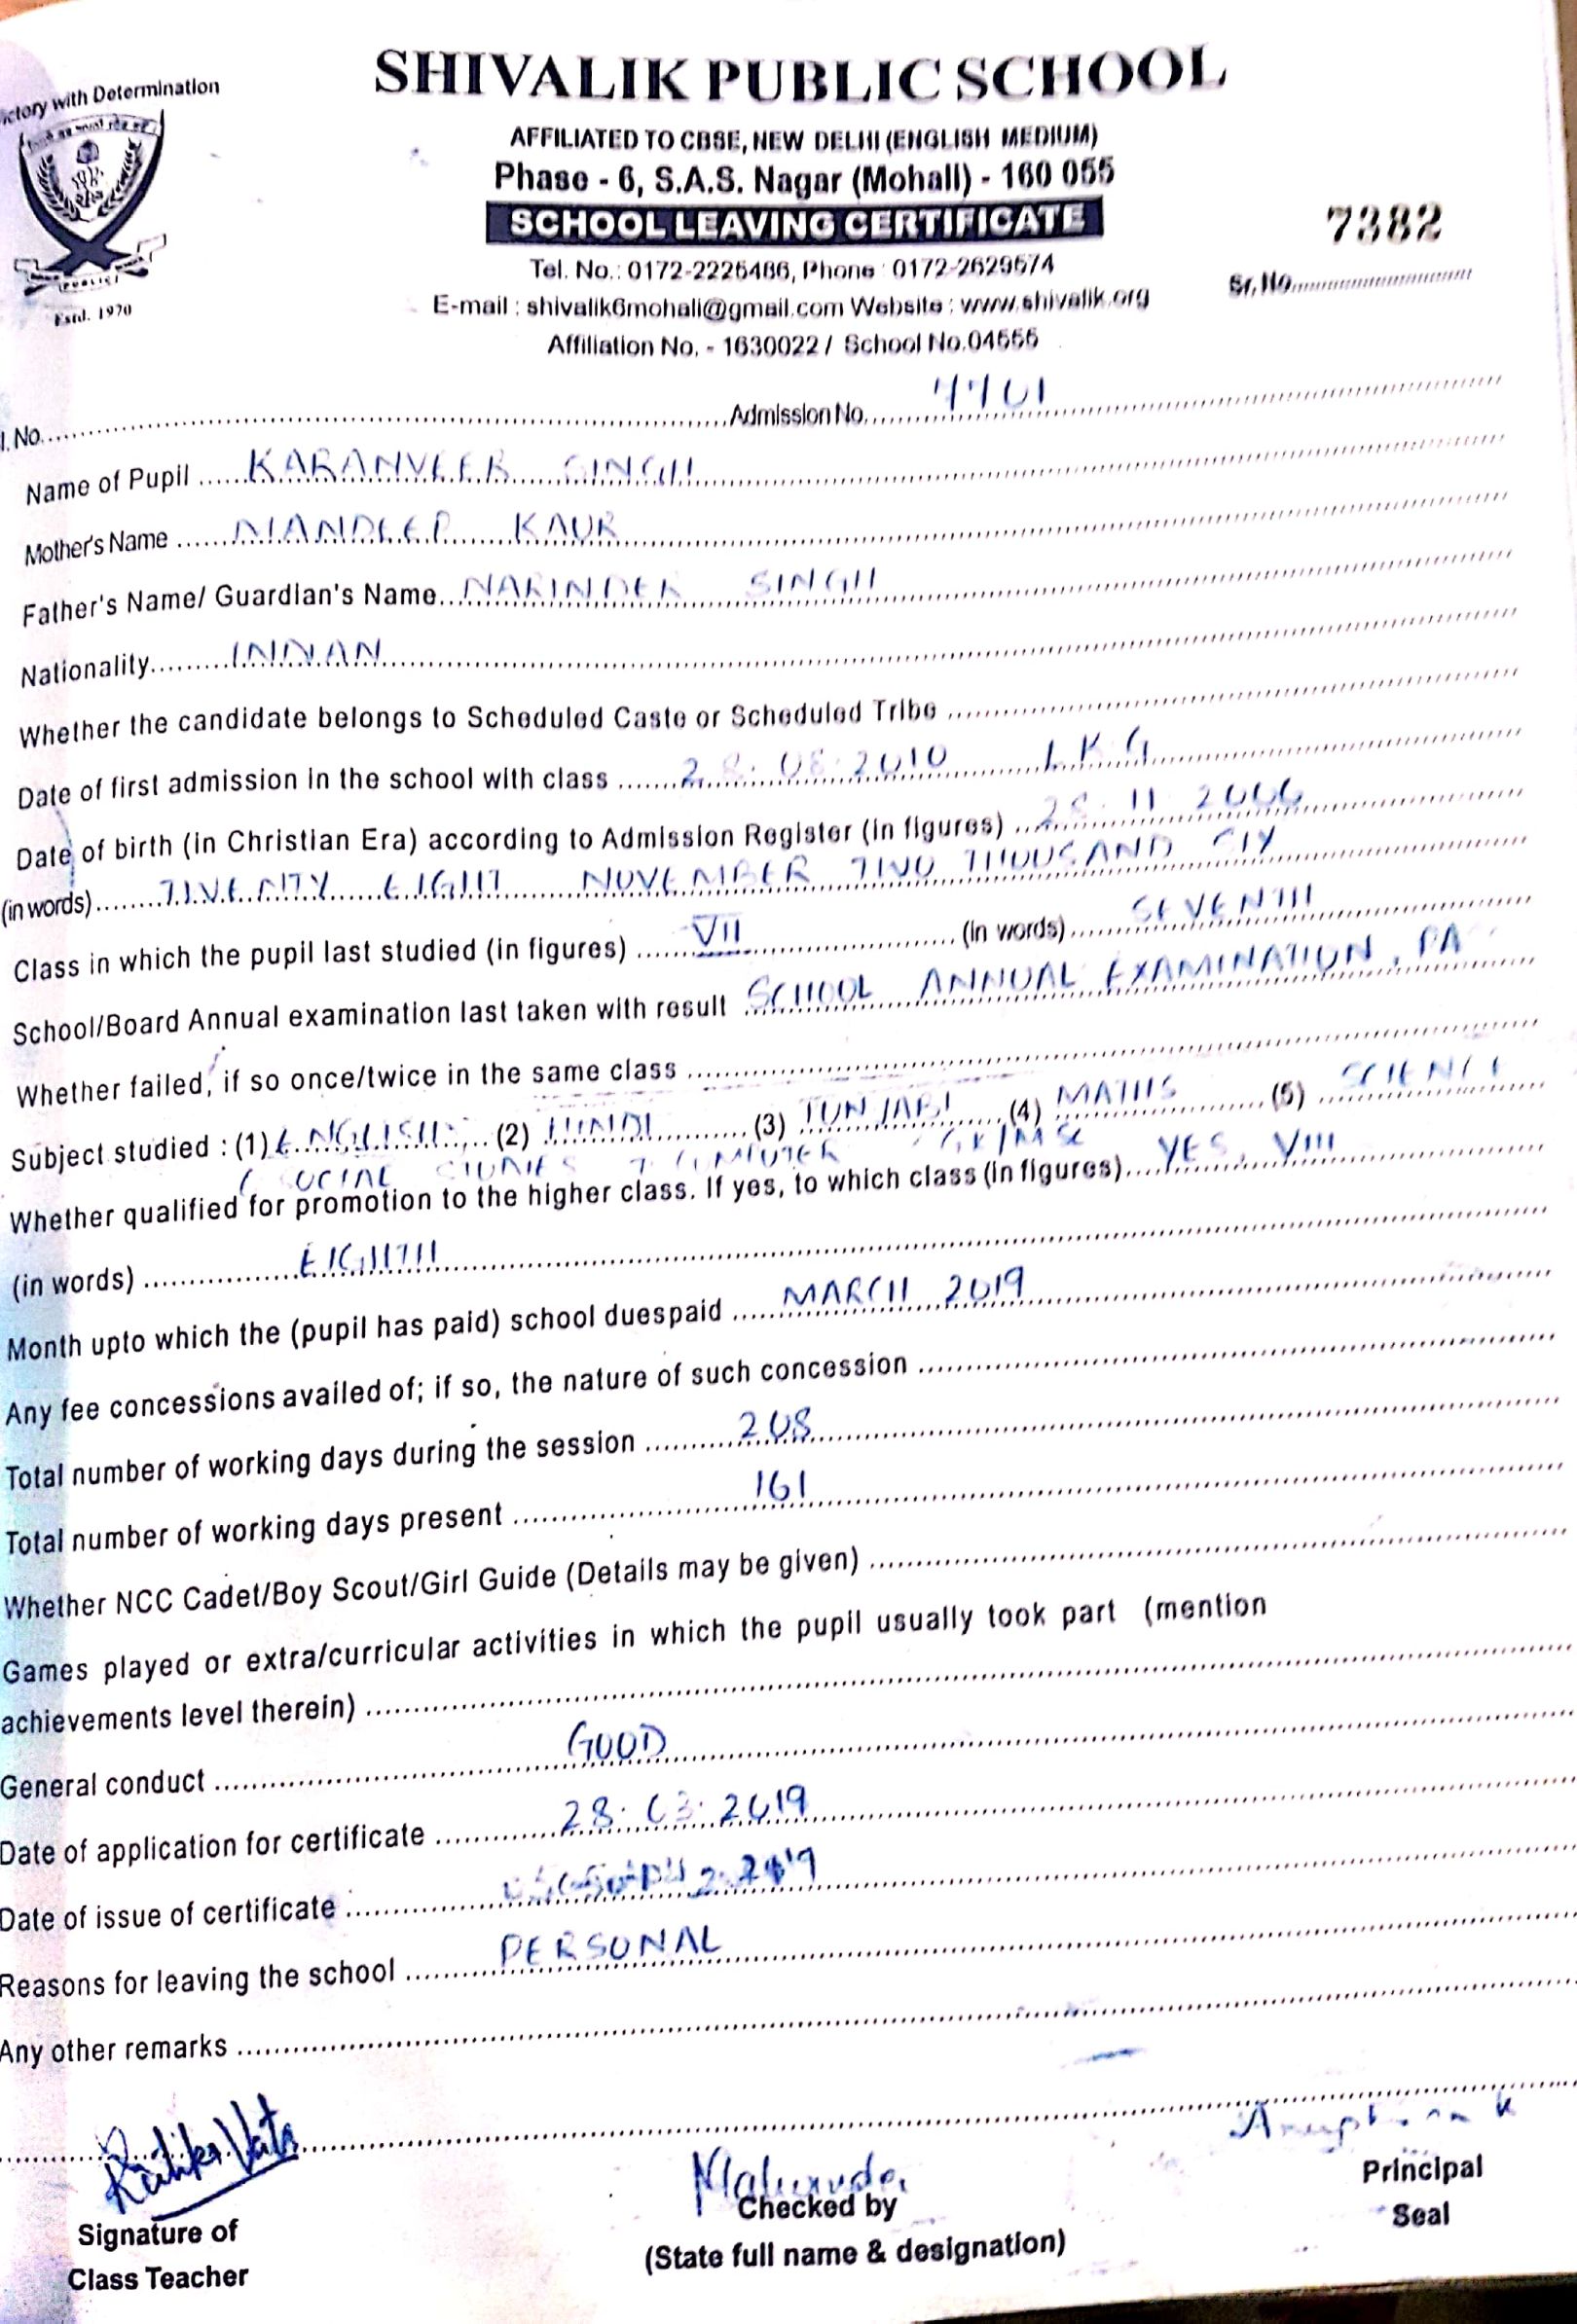 ictory with Determination
PUBLIC
Estd. 1970
SHIVALIK PUBLIC SCHOOL
AFFILIATED TO CBSE, NEW DELHI (ENGLISH MEDIUM)
Phase - 6, S.A.S. Nagar (Mohali) - 160 055
SCHOOL LEAVING CERTIFICATE
7382
Tel. No.: 0172-2225486, Phone : 0172-2629574
Sr. No.
E-mail : shivalik6mohali@gmail.com Website : www.shivalik.org
Affiliation No. - 1630022 / School No.04555
l. No. Admission No.
Name of Pupil KARANVEER SINGH
Mother's Name MANDEEP KAUR
Father's Name/ Guardian's Name NARINDER SINGH
Nationality INDIAN
Whether the candidate belongs to Scheduled Caste or Scheduled Tribe
Date of first admission in the school with class 28.08.2010 L.K.G
Date of birth (in Christian Era) according to Admission Register (in figures) 28.11.2006
(in words) TWENTY EIGHT NOVEMBER TWO THOUSAND SIX
Class in which the pupil last studied (in figures) VII (in words) SEVENTH
School/Board Annual examination last taken with result SCHOOL ANNUAL EXAMINATION, PA
Whether failed, if so once/twice in the same class
Subject studied : (1) ENGLISH (2) HINDI (3) PUNJABI (4) MATHS (5) SCIENCE
6 SOCIAL STUDIES 7 COMPUTER GK/MSc
Whether qualified for promotion to the higher class. If yes, to which class (in figures) YES, VIII
(in words) EIGHTH
Month upto which the (pupil has paid) school duespaid MARCH 2019
Any fee concessions availed of; if so, the nature of such concession
Total number of working days during the session 208
Total number of working days present 161
Whether NCC Cadet/Boy Scout/Girl Guide (Details may be given)
Games played or extra/curricular activities in which the pupil usually took part (mention
achievements level therein)
General conduct GOOD
Date of application for certificate 28.03.2019
Date of issue of certificate
Reasons for leaving the school PERSONAL
Any other remarks
Signature of
Class Teacher
Checked by
(State full name & designation)
Principal
Seal